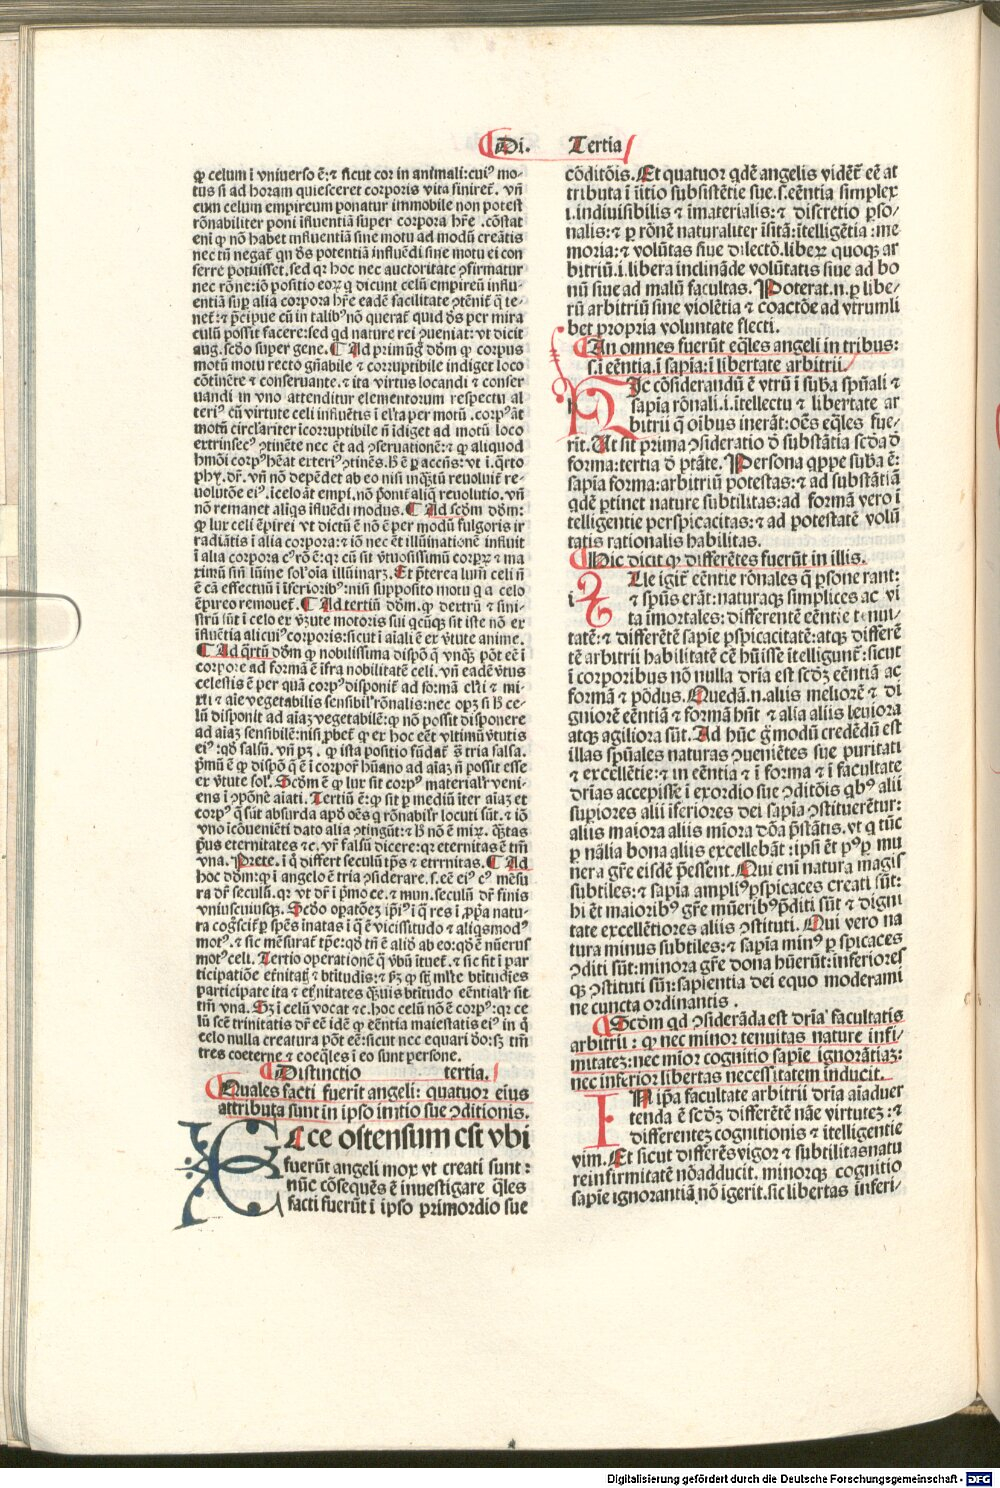 Di. Tertia
ꝙ celum ī vniuerso ē: ⁊ sicut cor in animali: cuiꝰ mo-
tus si ad horam quiesceret corporis vita finiret̄. vñ
cum celum empireum ponatur immobile non potest
rōnabiliter poni īfluentiā super corpora hr̄e .cōstat
eni ꝙ nō habet influentiā sine motu ad modū creātis
nec tñ negat̄ qn ds potentiā influēdi sine motu ei con
ferre potuisset. sed qr hoc nec auctoritate ɔfirmatur
nec rōne: iō positio eoꝝ q dicunt celū empireū influ-
entiā sup alia corpora hr̄e eadē facilitate ɔtēnit̄ q te-
net̄: ⁊ p̄cipue cū in talibꝰ nō querat̄ quid ds per mira
culū possit facere: sed qd nature rei ɔueniat: vt dicit
aug. scdo super gene. ¶ Ad primū g̊ dōm ꝙ corpus
motū motu recto gn̄abile ⁊ corruptibile indiget loco
cōtinēte ⁊ conseruante. ⁊ ita virtus locandi ⁊ conser
uandi in vno attenditur elementorum respectu al
teriꝰ cū virtute celi influētis ī elta per motū .corpꝰ āt
motū circĺariter icorruptibile n̄ īdiget ad motū loco
extrinsecꝰ ɔtinēte nec ēt ad ɔseruationē: ⁊ ꝙ aliquod
hmōi corpꝰ hēat exteriꝰ ɔtinēs. h̄ ē p accn̄s: vt ī .q̄rto
phy. dr̄. vñ nō depēdet ab eo nisi inq̄ʒtū reuoluit re-
uolutōe eiꝰ. ī celo āt empī. nō ponit̄ aliq̄ reuolutio. vñ
nō remanet aliqs īfluēdi modus. ¶ Ad scdm dōm:
ꝙ lux celi ēpirei vt dictū ē nō ē per modū fulgoris ir
radiātis ī alia corpora: ⁊ iō nec ēt illūinationē influit
ī alia corpora cꝰ rō ē: qr cū sit v̄tuosissimū corpꝝ ⁊ ma
ximū sin̄ lūine sol ꝰ oīa illūinarꝫ. Et p̄terea lum̄ celi n̄
ē cā effectuū ī īferioribꝰ: nisi supposito motu q a celo
ēpireo remouet̄. ¶ Ad tertiū dōm. ꝙ dextrū ⁊ sini-
strū sūt ī celo ex v̄tute motoris sui qcūqꝫ sit iste nō ex
īfluētia alicuiꝰ corporis: sicut ī aīali ē ex v̄tute anime.
¶ Ad q̄rtū dōm ꝙ nobilissima dispō q̄ vnqꝫ pōt eē ī
corpore ad formā ē īfra nobilitatē celi. vñ eadē v̄tus
celestis ē per quā corpꝰ disponit̄ ad formā elti ⁊ mi-
xti ⁊ aīe vegetabilis sensibil rōnalis: nec opꝫ si h̄ ce-
lū disponit ad aīaꝫ vegetabilē: ꝙ nō possit disponere
ad aīaꝫ sensibilē: nisi ꝓbet̄ ꝙ ex hoc eēt vltimū v̄tutis
eiꝰ: qd̄ falsū. vñ pꝫ . ꝙ ista positio fūdat̄ s̄ tria falsa.
p̄mū ē ꝙ dispō q̄ ē ī corpor̄ hūano ad aīaꝫ n̄ possit esse
ex v̄tute sol. Scdm ē ꝙ lux sit corpꝰ materialr̄ veni-
ens ī ɔpōnē aīati. Tertiū ē: ꝙ sit p mediū īter aīaꝫ et
corpꝰ q̄ sūt absurda apd̄ oēs q rōnabilr̄ locuti sūt. ⁊ iō
vno icōueniēti dato alia ɔtingūt: ⁊ h̄ nō ē mix. q̄ʒtas
p̄us eternitates ⁊c. vr̄ falsū dicere: qr eternitas ē tm̄
vna. Prete. ī q̄ differt seculū tp̄s ⁊ etrrnitas. ¶ Ad
hoc dōm: ꝙ ī angelo ē tria ɔsiderare. s. eē eiꝰ cꝰ mēsu
ra dr̄ seculū. qr vt dr̄ ī p̄mo ce. ⁊ mun. seculū dr̄ finis
vniuscuiusqꝫ. Scdo opatōeꝫ ip̄iꝰ ī q̄ res ī ꝓp̄a natu-
ra cog̊scit p spēs inatas ī q̄ ē vicissitudo ⁊ aliqsmodꝰ
motꝰ. ⁊ sic mēsurat̄ tp̄e: qd̄ tn̄ ē aliđ ab eo: qd̄ ē nūerus
motꝰ celi. Tertio operationē q̄ v̄bū ituet̄. ⁊ sic fit ī par
ticipatiōe et̄nitatꝫ ⁊ btitudīs: ⁊ sꝫ ꝙ stꝫ mlt̄e btitudīes
participate ita ⁊ et̄nitates q̄ʒuis btitudo eēntialr̄ sit
tm̄ vna. Sꝫ ī celū vocat ⁊c. hoc celū nō ē corpꝰ: qr ce
lū scē trinitatis dr̄ eē idē ꝙ eēntia maiestatis eiꝰ in q̄
celo nulla creatura pōt eē: sicut nec equari do: sꝫ tm̄
tres coeterne ⁊ coeq̄les ī eo sunt persone.
¶ Distinctio tertia.
Quales facti fuerīt angeli: quatuor eius
attributa sunt in ipso initio sue ɔditionis.
ECce ostensum est vbi
fuerūt angeli mox vt creati sunt:
nūc cōsequēs ē inuestigare q̄les
facti fuerūt ī ipso primordio sue
cōditōis. Et quatuor qdē angelis vident̄ eē at
tributa ī īitio subsistētie sue. s. eēntia simplex
i. indiuisibilis ⁊ īmaterialis: ⁊ discretio ꝑso/
nalis: ⁊ p rōnē naturaliter īsitā: ītelligētia: me
moria: ⁊ volūtas siue dilectō. liberꝫ quoqꝫ ar
bitriū. i. libera inclināde volūtatis siue ad bo
nū siue ad malū facultas. Poterāt. n. p libe-
rū arbitriū sine violētia ⁊ coactōe ad vtrumli
bet propria voluntate flecti.
¶ An omnes fuerūt eq̄les angeli in tribus:
s. ī eēntia. ī sapīa: ī libertate arbitrii.
HIc cōsiderandū ē vtrū ī suba spūali ⁊
sapīa rōnali. i. ītellectu ⁊ libertate ar
bitrii q̄ oibus inerāt: oēs eq̄les fue-
rīt. Ut sit prima ɔsideratio d̄ substātia scd̄a d̄
forma: tertia d̄ ptāte. Persona qppe suba ē:
sapīa forma: arbitriū potestas: ⁊ ad substātiā
qdē ptinet nature subtilitas: ad formā vero ī
telligentie perspicacitas: ⁊ ad potestatē volū
tatis rationalis habilitas.
¶ Hic dicit ꝙ differētes fuerūt in illis.
ILle igit̄ eēntie rōnales q̄ psone rant:
⁊ spūs erāt: naturaqꝫ simplices ac vi
ta imortales: differentē eēntie tenui-
tatē: ⁊ differētē sapīe pspicacitatē: atqꝫ differē
tē arbitrii habilitatē cē hūisse ītelligunt̄: sicut
ī corporibus nō nulla dr̄ia est scdꝫ eēntiā ac
formā ⁊ pōdus. Quedā. n. aliis meliorē ⁊ di
gniorē eēntiā ⁊ formā hn̄t ⁊ alia aliis leuiora
atqꝫ agiliora sūt. Ad hūc g̊ modū credēdū est
illas spūales naturas ɔueniētes sue puritati
⁊ excellētie: ⁊ in eēntia ⁊ ī forma ⁊ ī facultate
dr̄ias accepisse ī exordio sue ɔditōis qbꝰ alii
supiores alii īferiores dei sapīa ɔstituerētur:
aliis maiora aliis mīora dōa p̄stātis. vt q tūc
p nālia bona aliis excellebāt: ipsi ēt pꝰ p mu
nera gr̄e eisdē p̄essent. Qui eni natura magis
subtiles: ⁊ sapīa ampliꝰ pspicaces creati sūt:
hi ēt maioribꝰ gr̄e mūeribꝰ p̄diti sūt ⁊ digni
tate excellētiores aliis ɔstituti. Qui vero na
tura minus subtiles: ⁊ sapīa minꝰ p spicaces
ɔditi sūt: minora gr̄e dona hūerūt: inferiores
qꝫ ɔstituti sūt: sapientia dei equo moderami
ne cuncta ordinantis.
¶ Scdm qd ɔsiderāda est dr̄ia facultatis
arbitrii: ꝙ nec minor tenuitas nature infi-
mitateꝫ: nec mīor cognitio sapīe ignorātiaꝫ:
nec inferior libertas necessitatem inducit.
IN ip̄a facultate arbitrii dr̄ia aīaduer
tenda ē scdꝫ differētē nāe virtuteꝫ: ⁊
differenteꝫ cognitionis ⁊ ītelligentie
vim. Et sicut differēs vigor ⁊ subtilitas natu
re infirmitatē nō adducit. minorqꝫ cognitio
sapīe ignorantiā nō īgerit. sic libertas inferi/
Digitalisierung gefördert durch die Deutsche Forschungsgemeinschaft - DFG